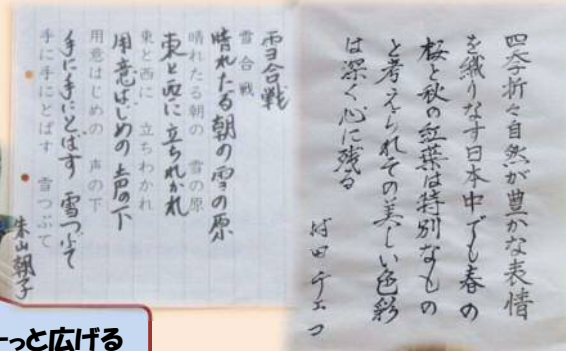 四季折々自然が豊かな表情
を織りなす日本中でも春の
桜と秋の紅葉は特別なもの
と考えられその美しい色彩
は深く心に残る
村田チエコ
雪合戦
雪合戦
晴れたる朝の雪の原
晴れたる朝の 雪の原
東と西に立ちわかれ
東と西に 立ちわかれ
用意はじめの声の下
用意はじめの 声の下
手に手にとばす 雪つぶて
手に手にとばす 雪つぶて
朱山朝子
ーっと広げる